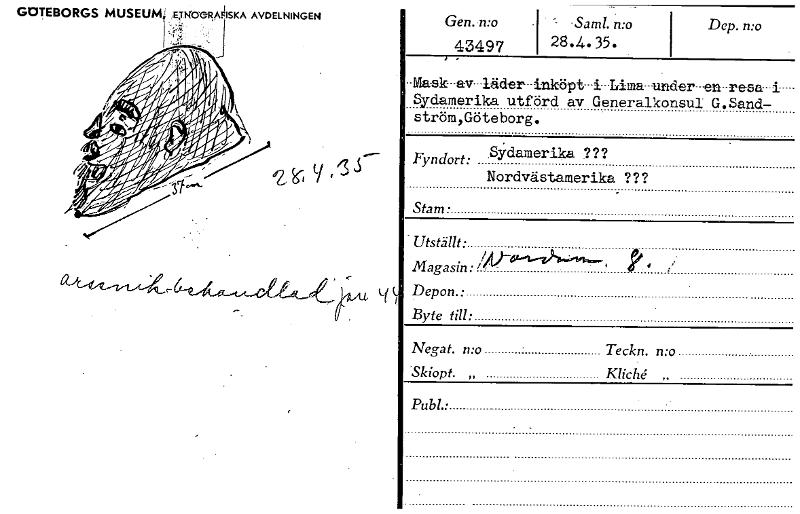 GÖTEBORGS MUSEUM, ETNOGRAFISKA AVDELNINGEN
37 cm
28.4.35
arsenikbehandlad jan 44
Gen. n:o
43497
Saml. n:o
28.4.35.
Dep. n:o
Mask av läder inköpt i Lima under en resa i
Sydamerika utförd av Generalkonsul G.Sand-
ström,Göteborg.
Fyndort: Sydamerika ???
Nordvästamerika ???
Stam:
Utställt:
Magasin: 8.
Depon.:
Byte till:
Negat. n:o Teckn. n:o
Skiopt. „ Kliché „
Publ.: